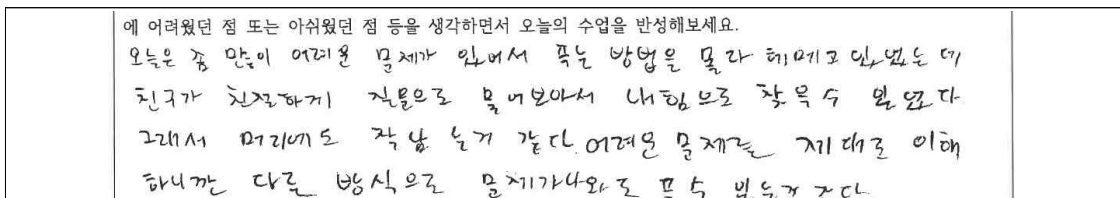 에 어려웠던 점 또는 아쉬웠던 점 등을 생각하면서 오늘의 수업을 반성해보세요.
오늘은 좀 많이 어려운 문제가 있어서 푸는 방법을 몰라 헤메고 있었는데
친구가 친절하게 질문으로 물어보아서 내힘으로 찾을수 있었다
그래서 머리에도 작남는거 같다. 어려운 문제를 제대로 이해
하니깐 다른 방식으로 문제가나와도 푸수 있는거 가다